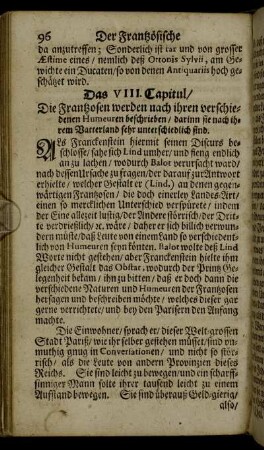 96 Der Frantzösische
da anzutreffen; Sonderlich ist rar und von grosser
Æstime eines / nemlich deß Ottonis Sylvii, am Ge-
wichte ein Ducaten / so von denen Antiquariis hoch ge-
schätzet wird.
Das VIII. Capitul /
Die Frantzosen werden nach ihren verschie-
denen Humeuren beschrieben / darinn sie nach ih-
rem Vatterland sehr unterschiedlich sind.
Als Franckenstein hiermit seinen Discurs be-
schlosse / sahe sich Lind umher / und fieng endlich
an zu lachen / wodurch Balot verursacht ward /
nach dessen Ursache zu fragen / der darauf zur Antwort
erhielte / welcher Gestalt er (Lind.) an denen gegen-
wärtigen Frantzosen / die doch einerley Landes-Art /
einen so mercklichen Unterschied verspürete / indem
der Eine allezeit lustig / der Andere störrisch / der Drit-
te verdrießlich / &c. wäre / daher er sich billich verwun-
dern müste / daß Leute von einem Land so verschiedent-
lich von Humeuren seyn könten. Balot wolte deß Lind
Worte nicht gestehen / aber Franckenstein hielte ihm
gleicher Gestalt das Obstat, wodurch der Printz Ge-
legenheit bekam / ihn zu bitten / daß er doch dann die
verschiedene Naturen und Humeuren der Frantzosen
hersagen und beschreiben möchte / welches dieser gar
gerne verrichtete / und bey den Parisern den Anfang
machte.
Die Einwohner / sprach er / dieser Welt-grossen
Stadt Pariß / wie ihr selber gestehen müsset / sind un-
muthig gnug in Conversationen / und nicht so stör-
risch / als die Leute von andern Provintzien dieses
Reichs. Sie sind leicht zu bewegen / und ein scharff-
sinniger Mann solte ihrer tausend leicht zu einem
Auffstand bewegen. Sie sind überauß Geld-gierig /
also /